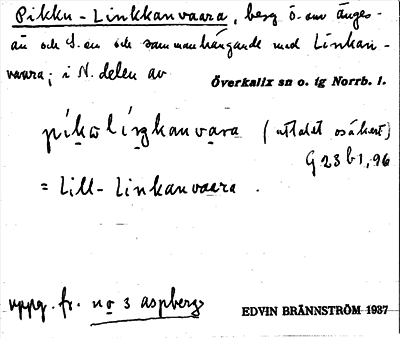 Pikku-Linkkanvaara, berg ö. om änges-
ån och S. om och sammanhängande med Linkan-
vaara; i N. delen av
Överkalix sn o. tg Norrb. l.
píkω líŋkanvara (uttalet osäkert)
G 23 b 1, 96
= Lill-Linkanvaara.
uppg. fr. no 3 aspberg
EDVIN BRÄNNSTRÖM 1937